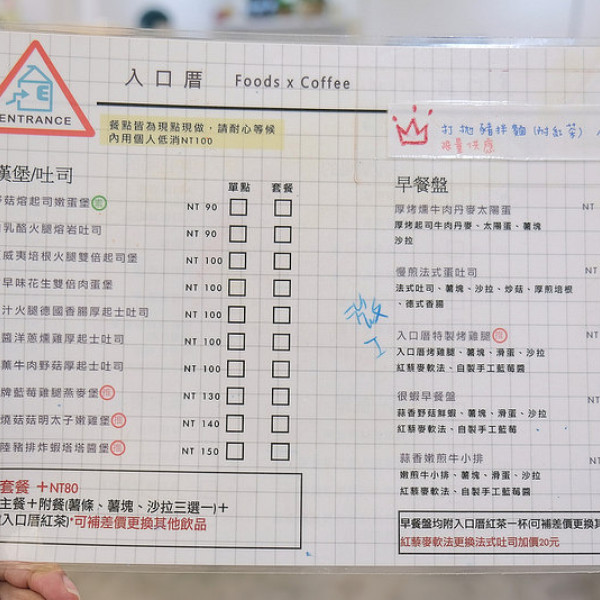 E
ENTRANCE
入口厝 Foods x Coffee
餐點皆為現點現做，請耐心等候
內用個人低消NT100
打拋豬拌麵(附紅茶)
限量供應
漢堡/吐司
單點 套餐
菇熔起司嫩蛋堡 NT 90
乳酪火腿熔岩吐司 NT 90
威夷培根火腿雙倍起司堡 NT 100
早味花生雙倍肉蛋堡 NT 100
汁火腿德國香腸厚起士吐司 NT 100
醬洋蔥燻雞厚起士吐司 NT 100
薰牛肉野菇厚起士吐司 NT 100
牌藍莓雞腿燕麥堡 推 NT 130
燒菇菇明太子嫩雞堡 推 NT 140
陸豬排炸蝦塔塔醬堡 推 NT 150
套餐 +NT80
主餐+附餐(薯條、薯塊、沙拉三選一)+
入口厝紅茶)*可補差價更換其他飲品
早餐盤
厚烤燻牛肉丹麥太陽蛋 NT
厚烤起司牛肉丹麥、太陽蛋、薯塊
沙拉
慢煎法式蛋吐司 NT
法式吐司、薯塊、沙拉、炒菇、厚煎培根
、德式香腸
入口厝特製烤雞腿 推 NT
入口厝烤雞腿、薯塊、滑蛋、沙拉
紅藜麥軟法、自製手工藍莓醬
很蝦早餐盤 NT
蒜香野菇鮮蝦、薯塊、滑蛋、沙拉
紅藜麥軟法、自製手工藍莓
蒜香嫩煎牛小排 NT
嫩煎牛小排、薯塊、滑蛋、沙拉
紅藜麥軟法、自製手工藍莓醬
早餐盤均附入口厝紅茶一杯(可補差價更換其
紅藜麥軟法更換法式吐司加價20元